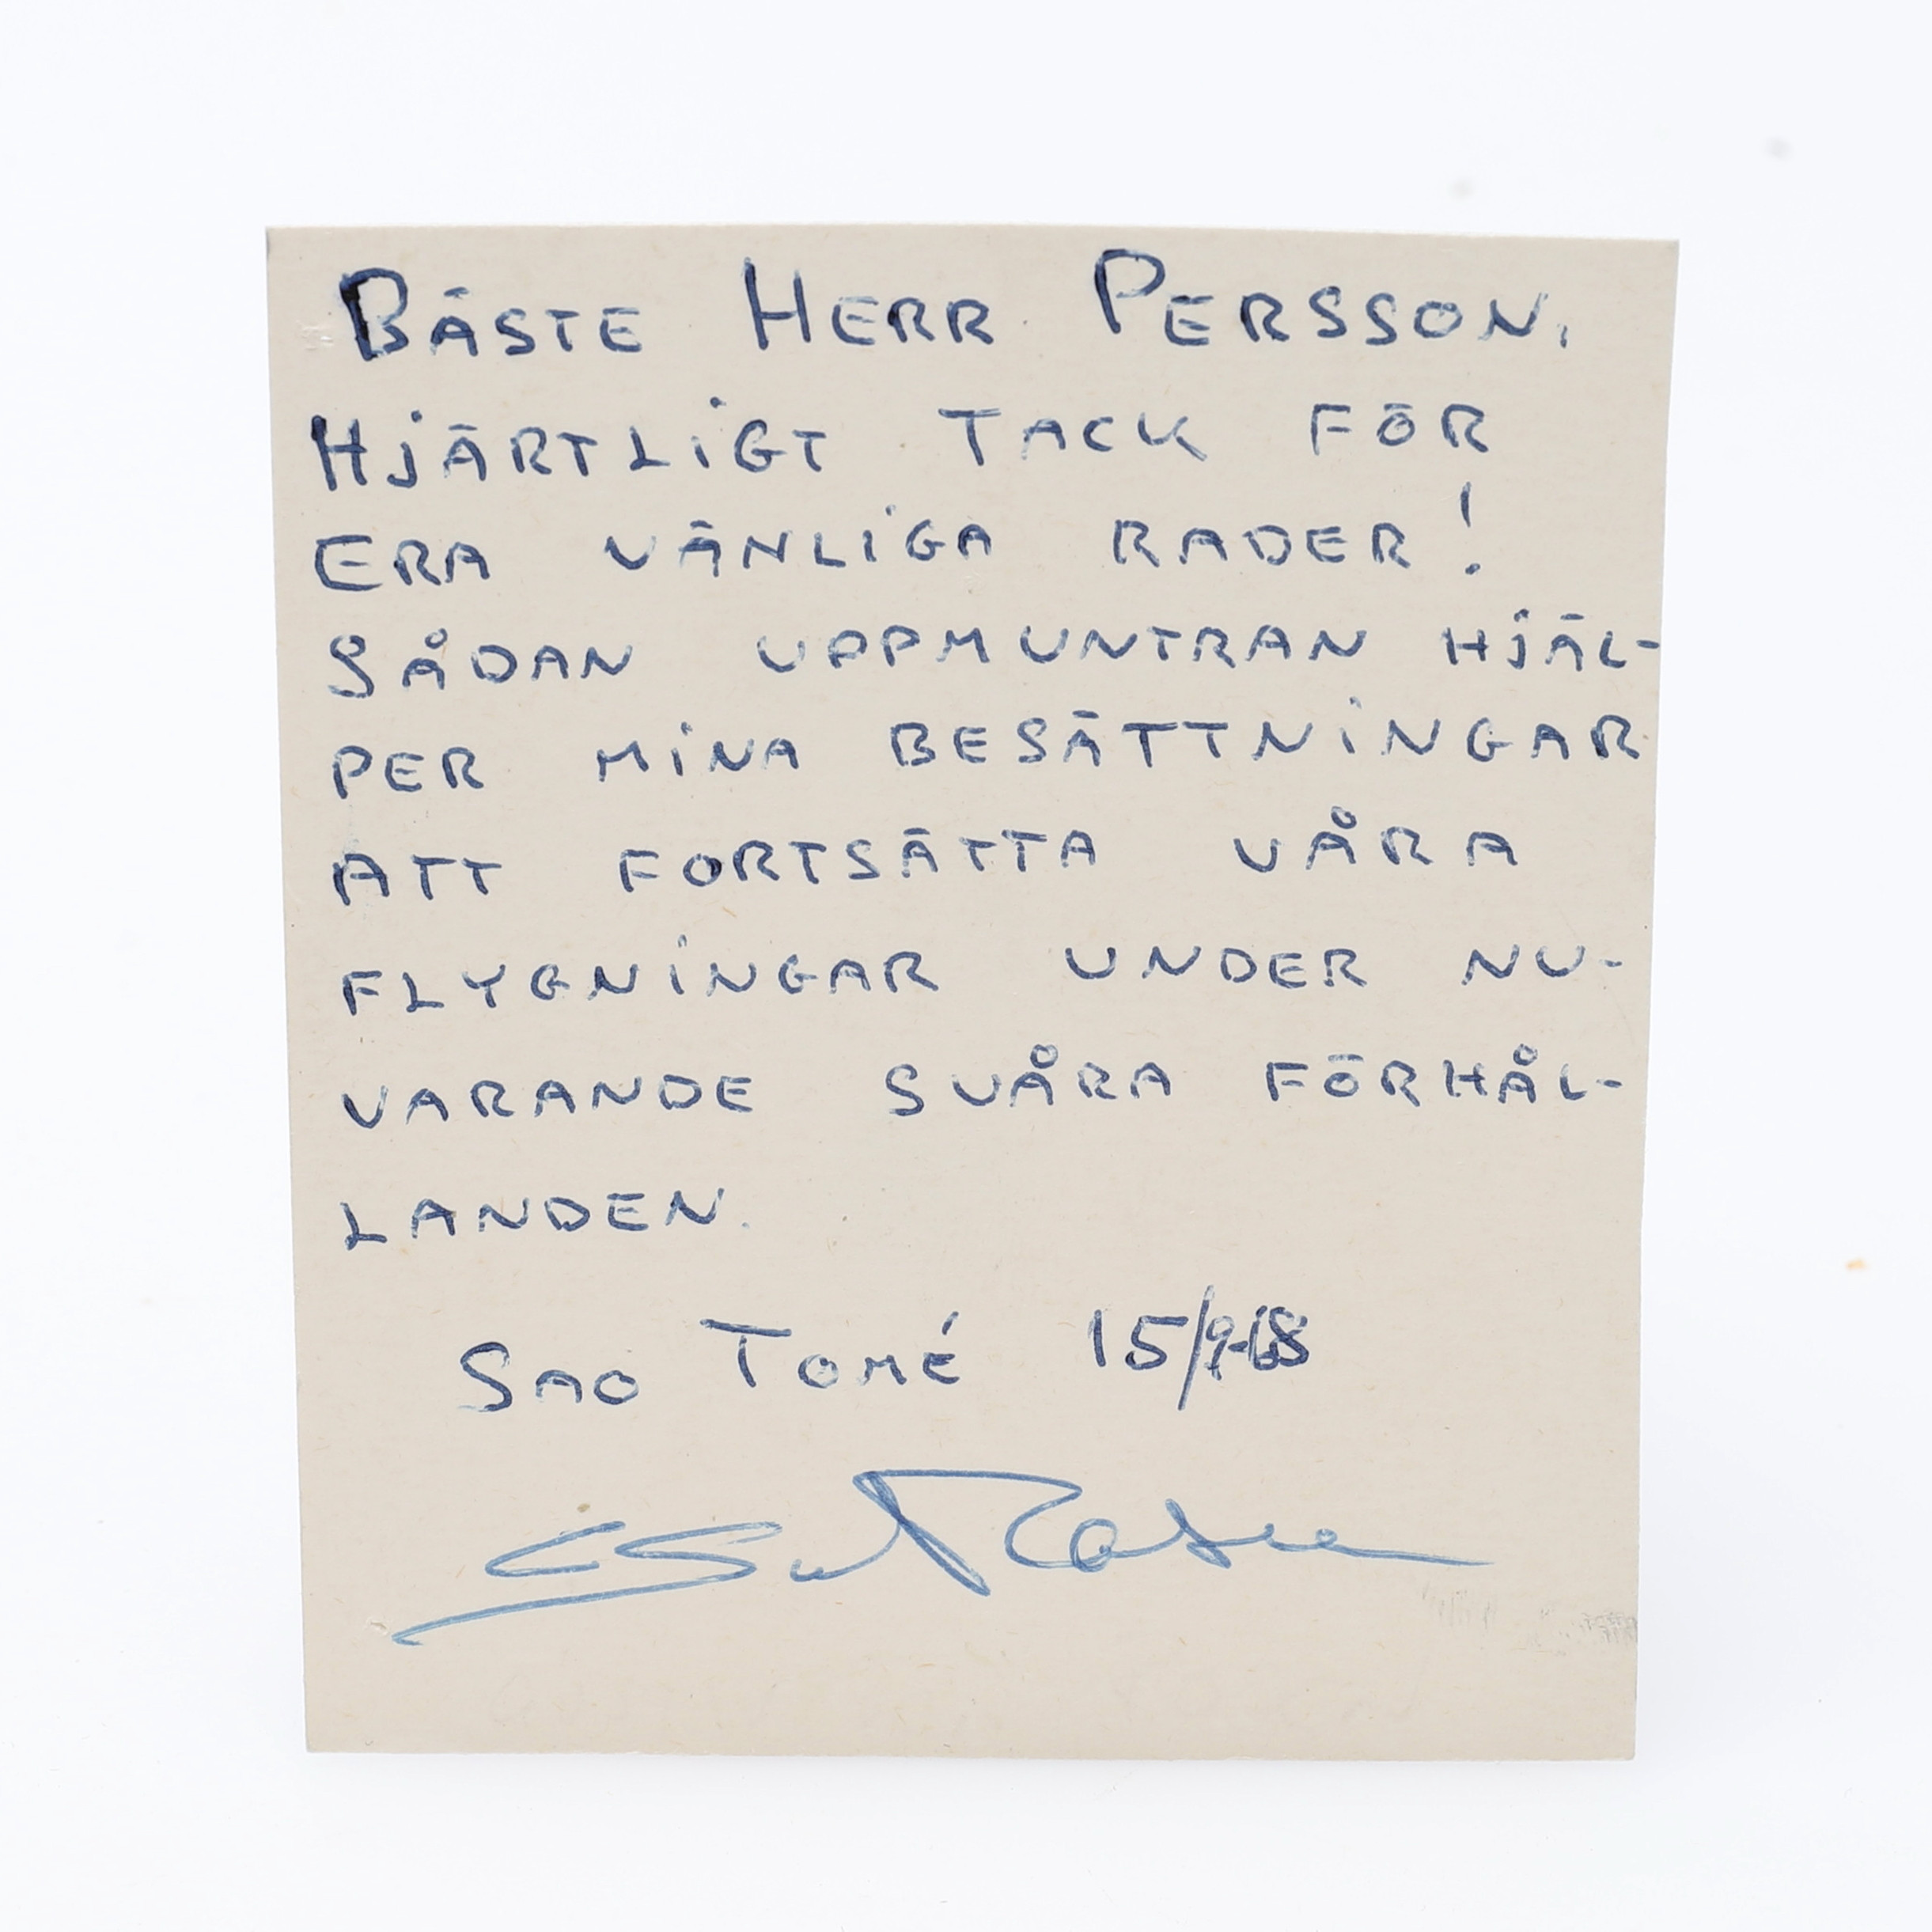 BÄSTE HERR PERSSON.
HJÄRTLIGT TACK FÖR
ERA VÄNLIGA RADER!
SÅDAN UPPMUNTRAN HJÄL-
PER MINA BESÄTTNINGAR
ATT FORTSÄTTA VÅRA
FLYGNINGAR UNDER NU-
VARANDE SVÅRA FÖRHÅL-
LANDEN.
SAO TOMÉ 15/9-68